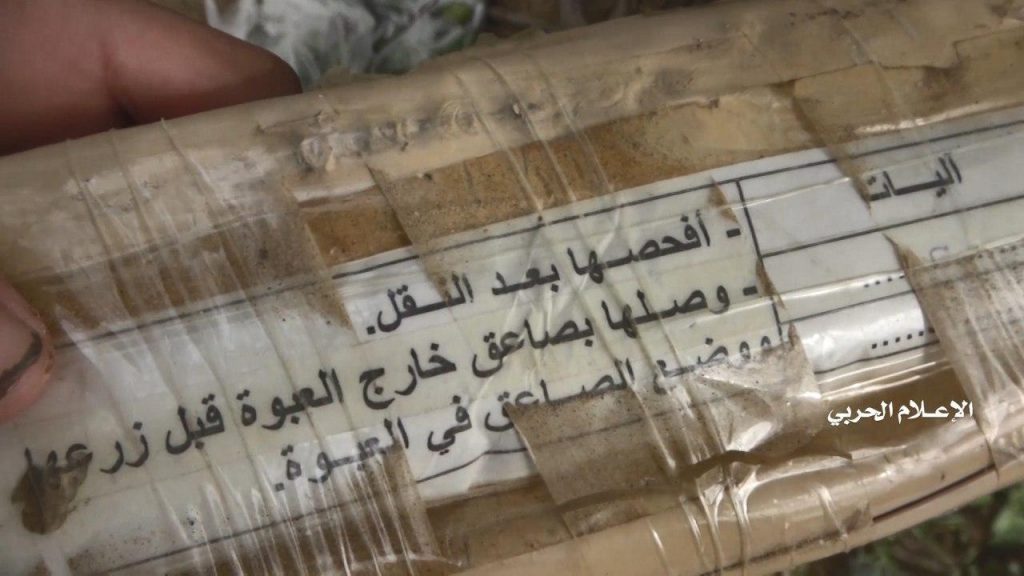 اليـــات
- أفحصـها بعـد النـقل.
- وصلها بصاعق خارج العبوة قبل زرعها
ووضـع الصـاعق في العبـوة.
......
.....
الإعـلام الحربي